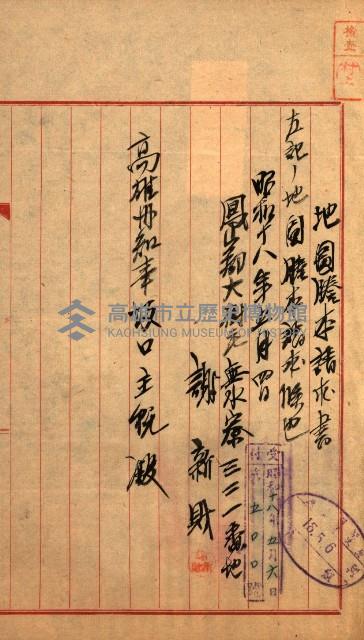 地圖謄本請求書
左記ノ地圖謄本請求候也
昭和十八年 月四日
鳳山郡大 無水寮三三一番地
謝新財
高雄州知事 口主税殿
高雄市立歷史博物館
KAOHSIUNG MUSEUM OF HISTORY
受付
昭和十八年五月六日
第五〇〇號
18.5.6